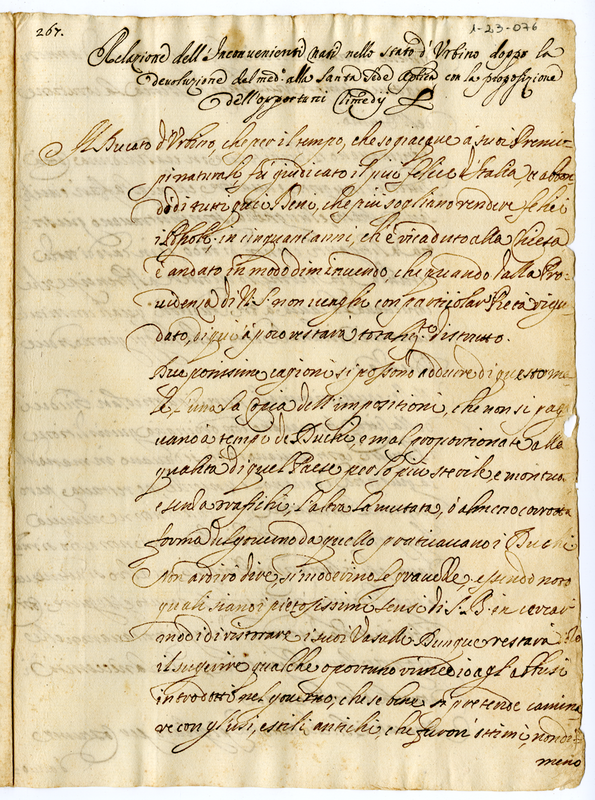 267.
1-23-076
Relazione dell'Inconvenienti nati nello Stato d'Urbino doppo la
devoluzione dal med.º alla Santa Sede Aplica con la proposizione
dell'opportuni Rimedij
Il Ducato d'Urbino, che per il tempo, che sogiacque a suoi Prenci-
pi naturali fù giudicato il più felice d'Italia, et abbon
dò di tutti quei Beni, che più sogliano rendere felici
i Popoli in cinquant'anni, ch'è ricaduto alla Chiesa
è andato in modo diminuendo, che quando dalla Pro-
videnza di N. S. non venghi con particolar Pietà rigu
dato, di qui à poco restarà totalm.to distrutto.
Due potissime cagioni si possono addurre di questo ma-
le l'una la Copia dell'impositioni, che non si paga
vano a tempi de Duchi, e mal proportionate alla
qualità di quel Paese per lo più sterile e montuo
e senza traffichi; l'altra la mutata, ò almeno corrotta
forma del governo da quello praticavano i Duchi
Non ardirò dire, si moderino le gravezze, essendo noto
quali siano i pietosissimi sensi di S. B. in cercar
modi di ristorare i suoi Vasalli Dunque restarà
il sugerire qualche oportuno rimedio agl'abusi
introdotti nel governo, che se bene si pretende camina
re con gl'usi, e stili antichi, che furon ottimi, nondi-
meno